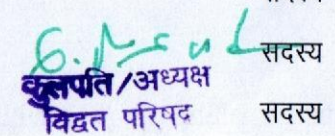 सदस्य
कुलपति/अध्यक्ष
विद्वत परिषद
सदस्य